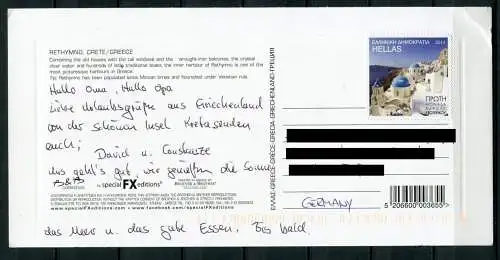 RETHYMNO, CRETE/GREECE
Combining the old houses with the tall windows and the
crystal clear water and hundreds of boats traditional boats, the inner harbour of Rethymno is one of
the most picturesque harbours in Greece.
The Rethymno has been populated since Minoan times and flourished under Venetian rule.
Hallo Oma, Hallo Opa
Liebe Urlaubsgrüße aus Griechenland
von der schönen Insel Kreta senden
euch; David u. Constanze
Uns geht's gut, wir genießen die Sonne,
das Meer u. das gute Essen, Bis bald.
by special FX editions®
www.facebook.com/specialFXeditions
ΕΛΛΑΣ-GREECE-GRECE-GRECIA-GRIECHENLAND-ГРЕЦИЯ
ΕΛΛΗΝΙΚΗ ΔΗΜΟΚΡΑΤΙΑ 2014
HELLAS
ΠΡΩΤΗ
GERMANY
5 206600 003655